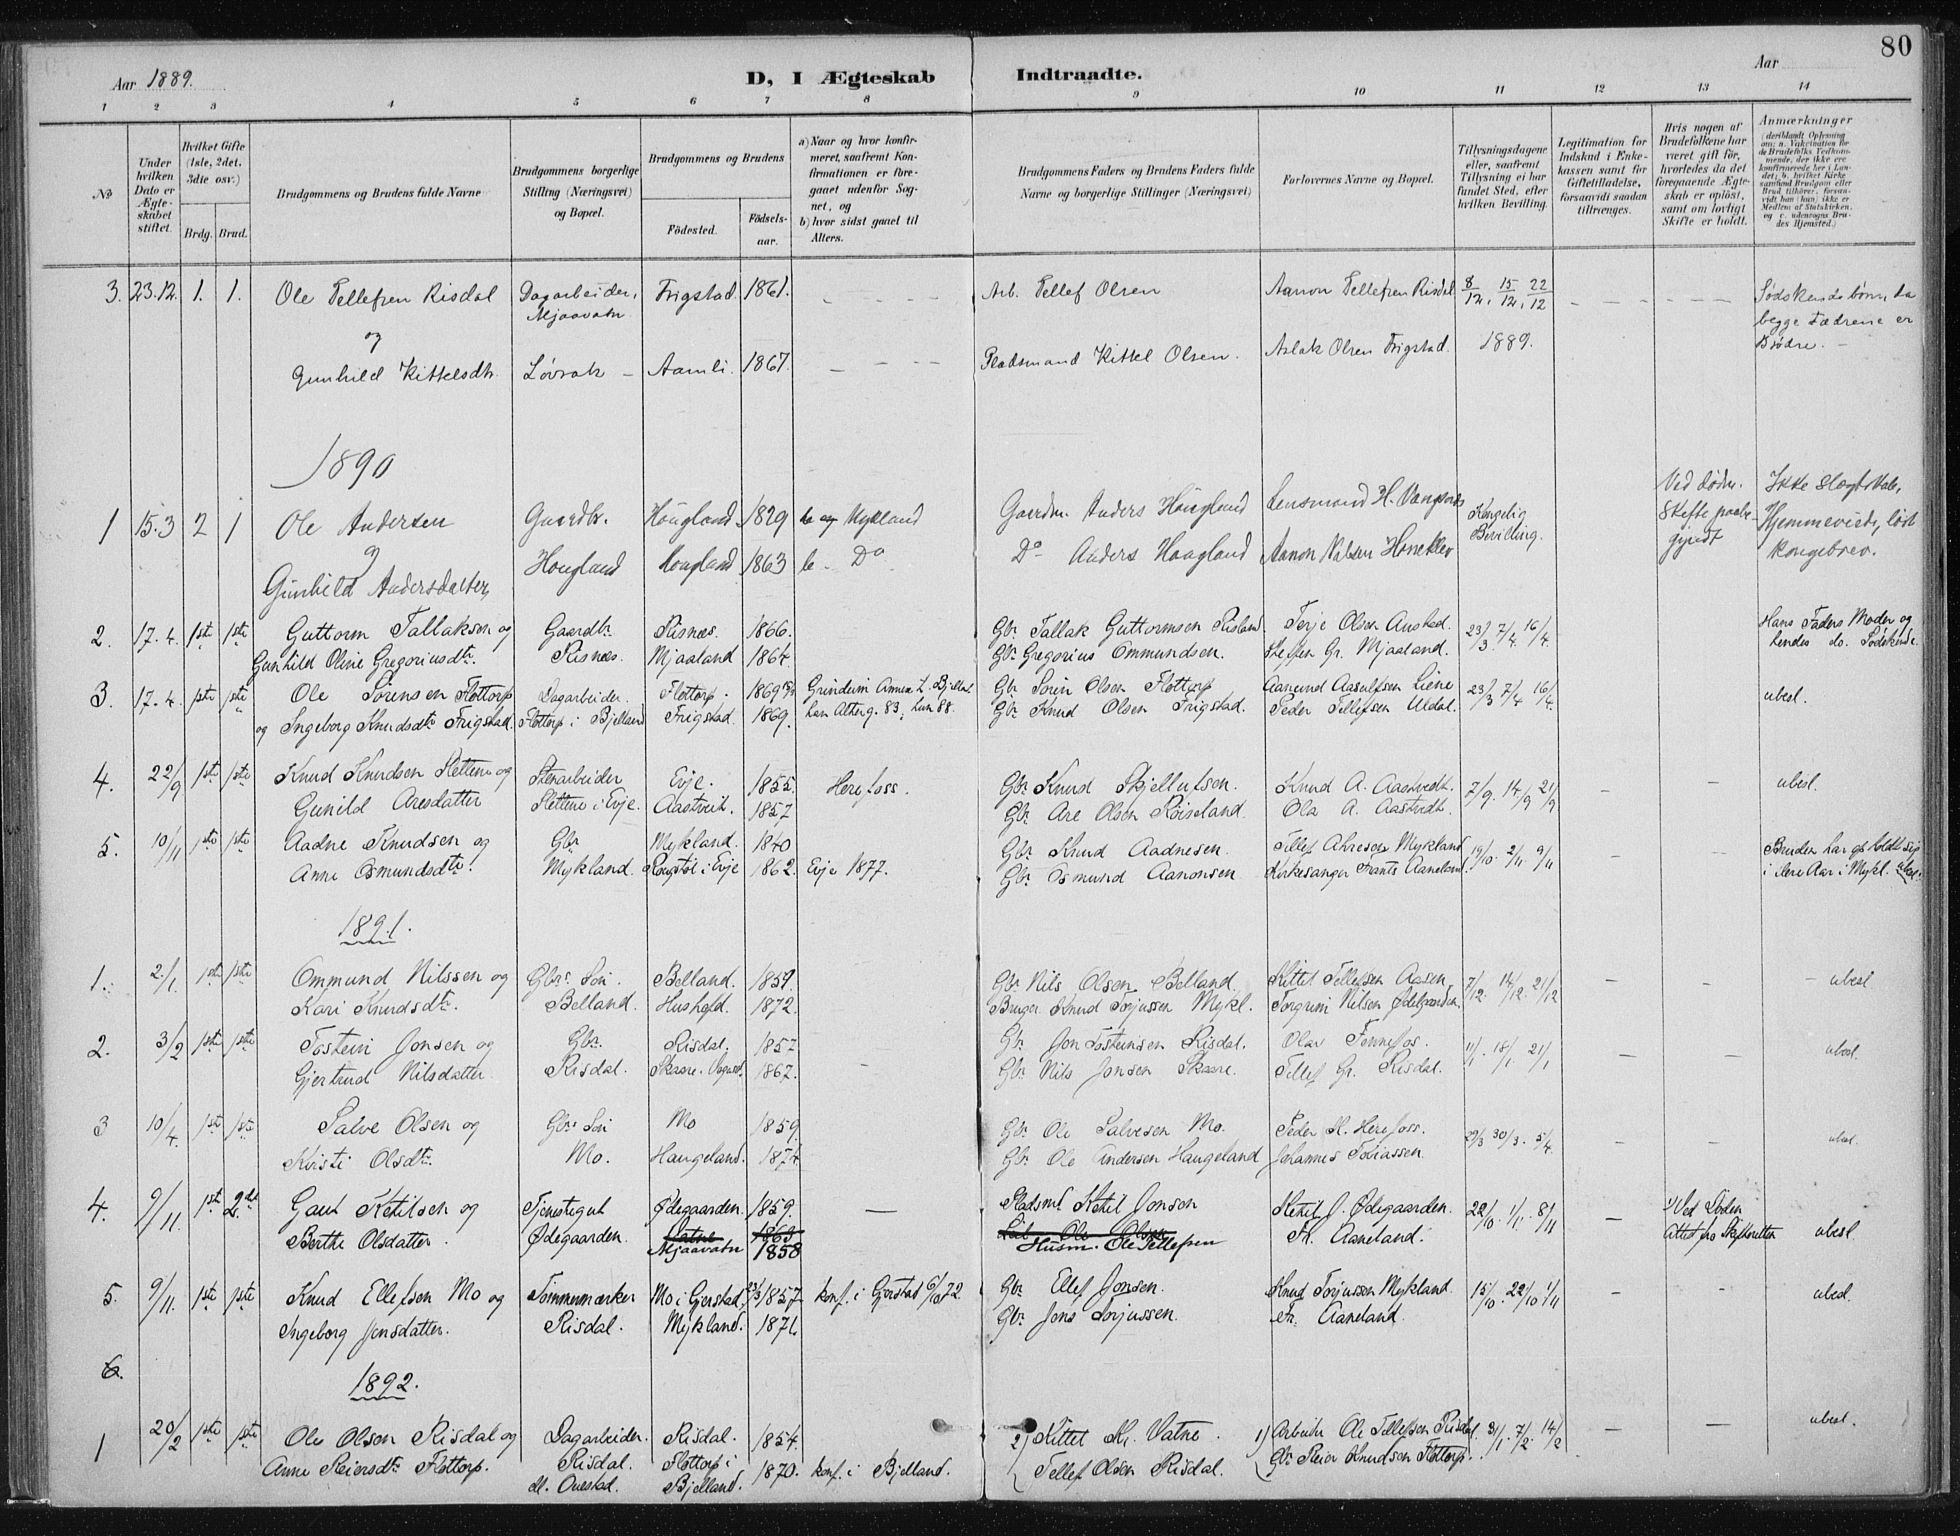 80
Aar 1889.
D, I Ægteskab Indtraadte.
Aar
1 2 3 4 5 6 7 8 9 10 11 12 13 14
No
Under hvilken Dato er Ægteskabet stiftet.
Hvilket Gifte (1ste, 2det, 3die osv.)
Brdg. Brud.
Brudgommens og Brudens fulde Navne
Brudgommens borgerlige Stilling (Næringsvei) og Bopæl.
Brudgommens og Brudens
Fødested.
Fødselsaar.
a) Naar og hvor konfirmeret, saafremt Konfirmationen er foregaaet udenfor Sognet, og
b) hvor sidst gaaet til Alters.
Brudgommens Faders og Brudens Faders fulde Navne og borgerlige Stillinger (Næringsvei)
Forlovernes Navne og Bopæl.
Tillysningsdagene eller, saafremt Tillysning ei har fundet Sted, efter hvilken Bevilling.
Legitimation for Indskud i Enkekassen samt for Giftetilladelse, forsaavidt saadan tiltrænges.
Hvis nogen af Brudefolkene har været gift før, hvorledes da det foregaaende Ægteskab er opløst, samt om lovligt Skifte er holdt.
Anmærkninger
3. 23.12. 1. 1. Ole Tellefsen Risdal Dagarbeider, Frigstad 1861. Arb. Tellef Olsen Aanon Tellefsen Risdal 8/12, 15/12, 22/12 Sødskendebørn, da
og Mjaavatn begge Fædrene er
Gunhild Kittelsdtr. Løvrak Aamli. 1867. Pladsmand Kittel Olsen. Aslak Olsen Frigstad. 1889. Brødre.
1890
1 15.3 2 1 Ole Andersen Gaardbr. Hougland 1829 Mykland Gaardm. Anders Hougland Lensmand H. Kongelig Bevilling. Ved Døden. Ikke Slægtskab,
og Hougland Hougland 1863 b. Do Do Anders Hougland Aanon Nilsen Skifte paabegyndt Hjemmevielse,
Gunhild Andersdatter, Kongebrev.
2. 17.4. 1ste 1ste Guttorm Tallaksen og Gaardbr. Risnæs. 1866. Gbr. Tallak Guttormsen Risland. Terje Olsen Austad. 23/3 7/4. 16/4. Hans Faders Moder og
Gunhild Oline Gregoriusdtr. Risnæs. Mjaaland 1864. Gbr. Gregorius Ommundsen. Steffen Gr. Mjaaland. hendes do. Sødskende.
3. 17.4. 1ste 1ste Ole Sørensen Fløttorp Dagarbeider. Fløttorp. 1869 Grindeim Annex t. Bjelland Gbr. Sørin Olsen Fløttorp Aanund Aasulfsen Liene 23/3 7/4 16/4. ubesl.
og Ingeborg Knudsdtr Frigstad. Fløttorp i Bjelland Frigstad. 1869. han Alterg. 83, hun 88. Gbr. Knud Olsen Frigstad. Peder Tellefsen Uldal.
4. 22/9 1ste 1ste Knud Knudsen Slettene og Stenarbeider Evje. 1855. Herefoss. Gbr. Knud Skjellufsen. Knud A. Aastvedt. 7/9. 14/9 21/9 ubesl.
Gunild Aresdatter Slettene i Evje. Aastveit. 1857 Gbr. Are Olsen Røiseland. Ola A. Aastvedt.
5. 10/11 1ste 1ste Aadne Knudsen og Gbr. Mykland. 1840 Gbr. Knud Aadnesen. Tellef Mykland 19/10. 2/11. 9/11 Bruden har opholdt sig
Anne Osmundsdtr. Mykland. i Evje 1862. Evje 1877. Gbr. Osmund Aanonsen Kirkesanger Frants Aaneland. i flere Aar i Mykl. ubesl.
1891.
1. 2/1. 1ste 1ste Ommund Nilssen og Gbrs Søn. Belland. 1859. Gbr. Nils Olsen Belland. Kittel Tellefsen Aasen, 7/12. 14/12. 21/12 ubesl
Kari Knudsdtr. Belland. Hushold. 1872. Knud Torjussen Mykl. Torgrim Nilsen Ødegaarden.
2. 3/2 1ste 1ste Tostein Jonsen og Gbr. Risdal. 1857 Gbr. Jon Tosteinsen Risdal. Olav Tønnefos. 11/1. 18/1. 21/1 ubesl.
Gjertrud Nilsdatter Risdal. Skaare i 1867. Gbr. Nils Jonsen Skaare. Tellef Gr. Risdal.
3 10/4. 1ste 1ste Salve Olsen og Gbrs Søn Mo 1859. Gbr. Ole Salvesen Mo. Peder H. Herefoss. 29/3 30/3. 5/4. ubesl.
Kristi Olsdtr. Mo. Haugeland. 1874 Gbr. Ole Andersen Haugeland Johannes Tobiassen.
4. 9/11. 1ste 2det Gaut Ketilsen og Tjenestegut Ødegaarden. 1859. Pladsm. Ketil Jonson Ketil J. Ødegaarden. 22/10. 1/11. 8/11 Ved Døden ubesl.
Berthe Olsdatter. Ødegaarden. Vatne 1863 Ole Olsen Fr. Aaneland. Attest fra Skifteretten
Mjaavatn 1858 Husm. Ole Tellefsen
5. 9/11. 1ste 1ste Knud Ellefsen Mo og Tømmermærker Mo i Gjerstad, 1857. konf. i Gjerstad 6/10 72. Gbr. Ellef Jonsen. Knud Torjussen Mykland. 15/10. 22/10. 1/11 ubesl.
Ingeborg Jonsdatter. Risdal. Mykland. 1871. Gbr. Jons Torjussen. Fr. Aaneland.
6.
1892.
1 20/2 1ste 1ste Ole Olson Risdal og Dagarbeider. Risdal. 1854. 2) Kittel Kr. Vatne. 1) Arbeider Ole Tellefsen Risdal 31/1. 7/2. 14/2 ubesl.
Anne Reiersdtr Fløttorp. Risdal. Fløttorp i Bjelland. 1870. konf. i Bjelland. Tellef Olsen Risdal. Gbr. Reier Knudsen Fløttorp.